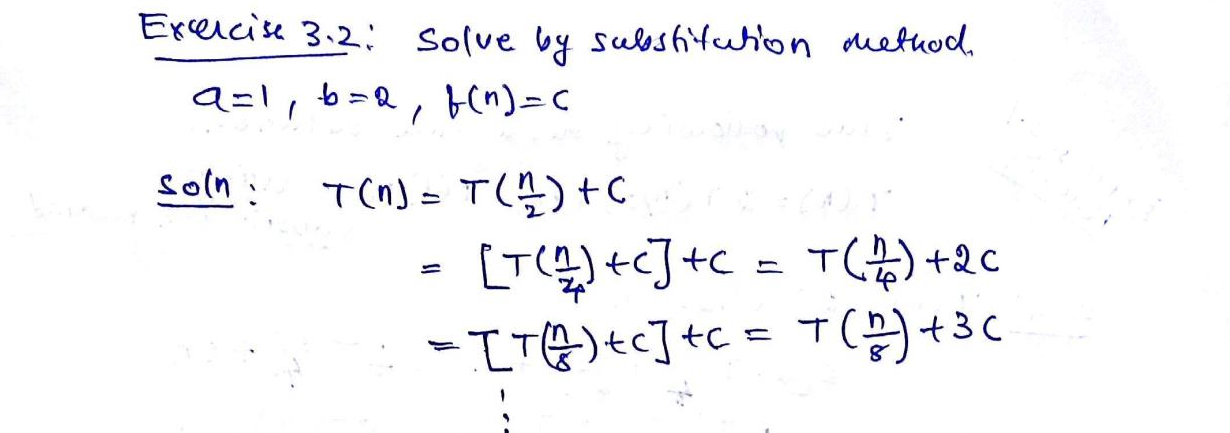 Exercise 3.2: Solve by substitution method.
a=1, b=2, f(n)=c
Soln: T(n) = T(n/2) + C
= [T(n/4) + C] + C = T(n/4) + 2C
= [T(n/8) + C] + C = T(n/8) + 3C
⋮